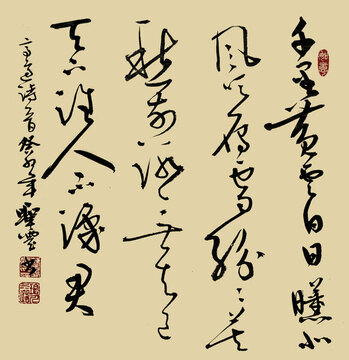 千里黄云白日曛北
风吹雁雪纷纷莫
愁前路无知己
天下谁人不识君
高适诗一首 年 书